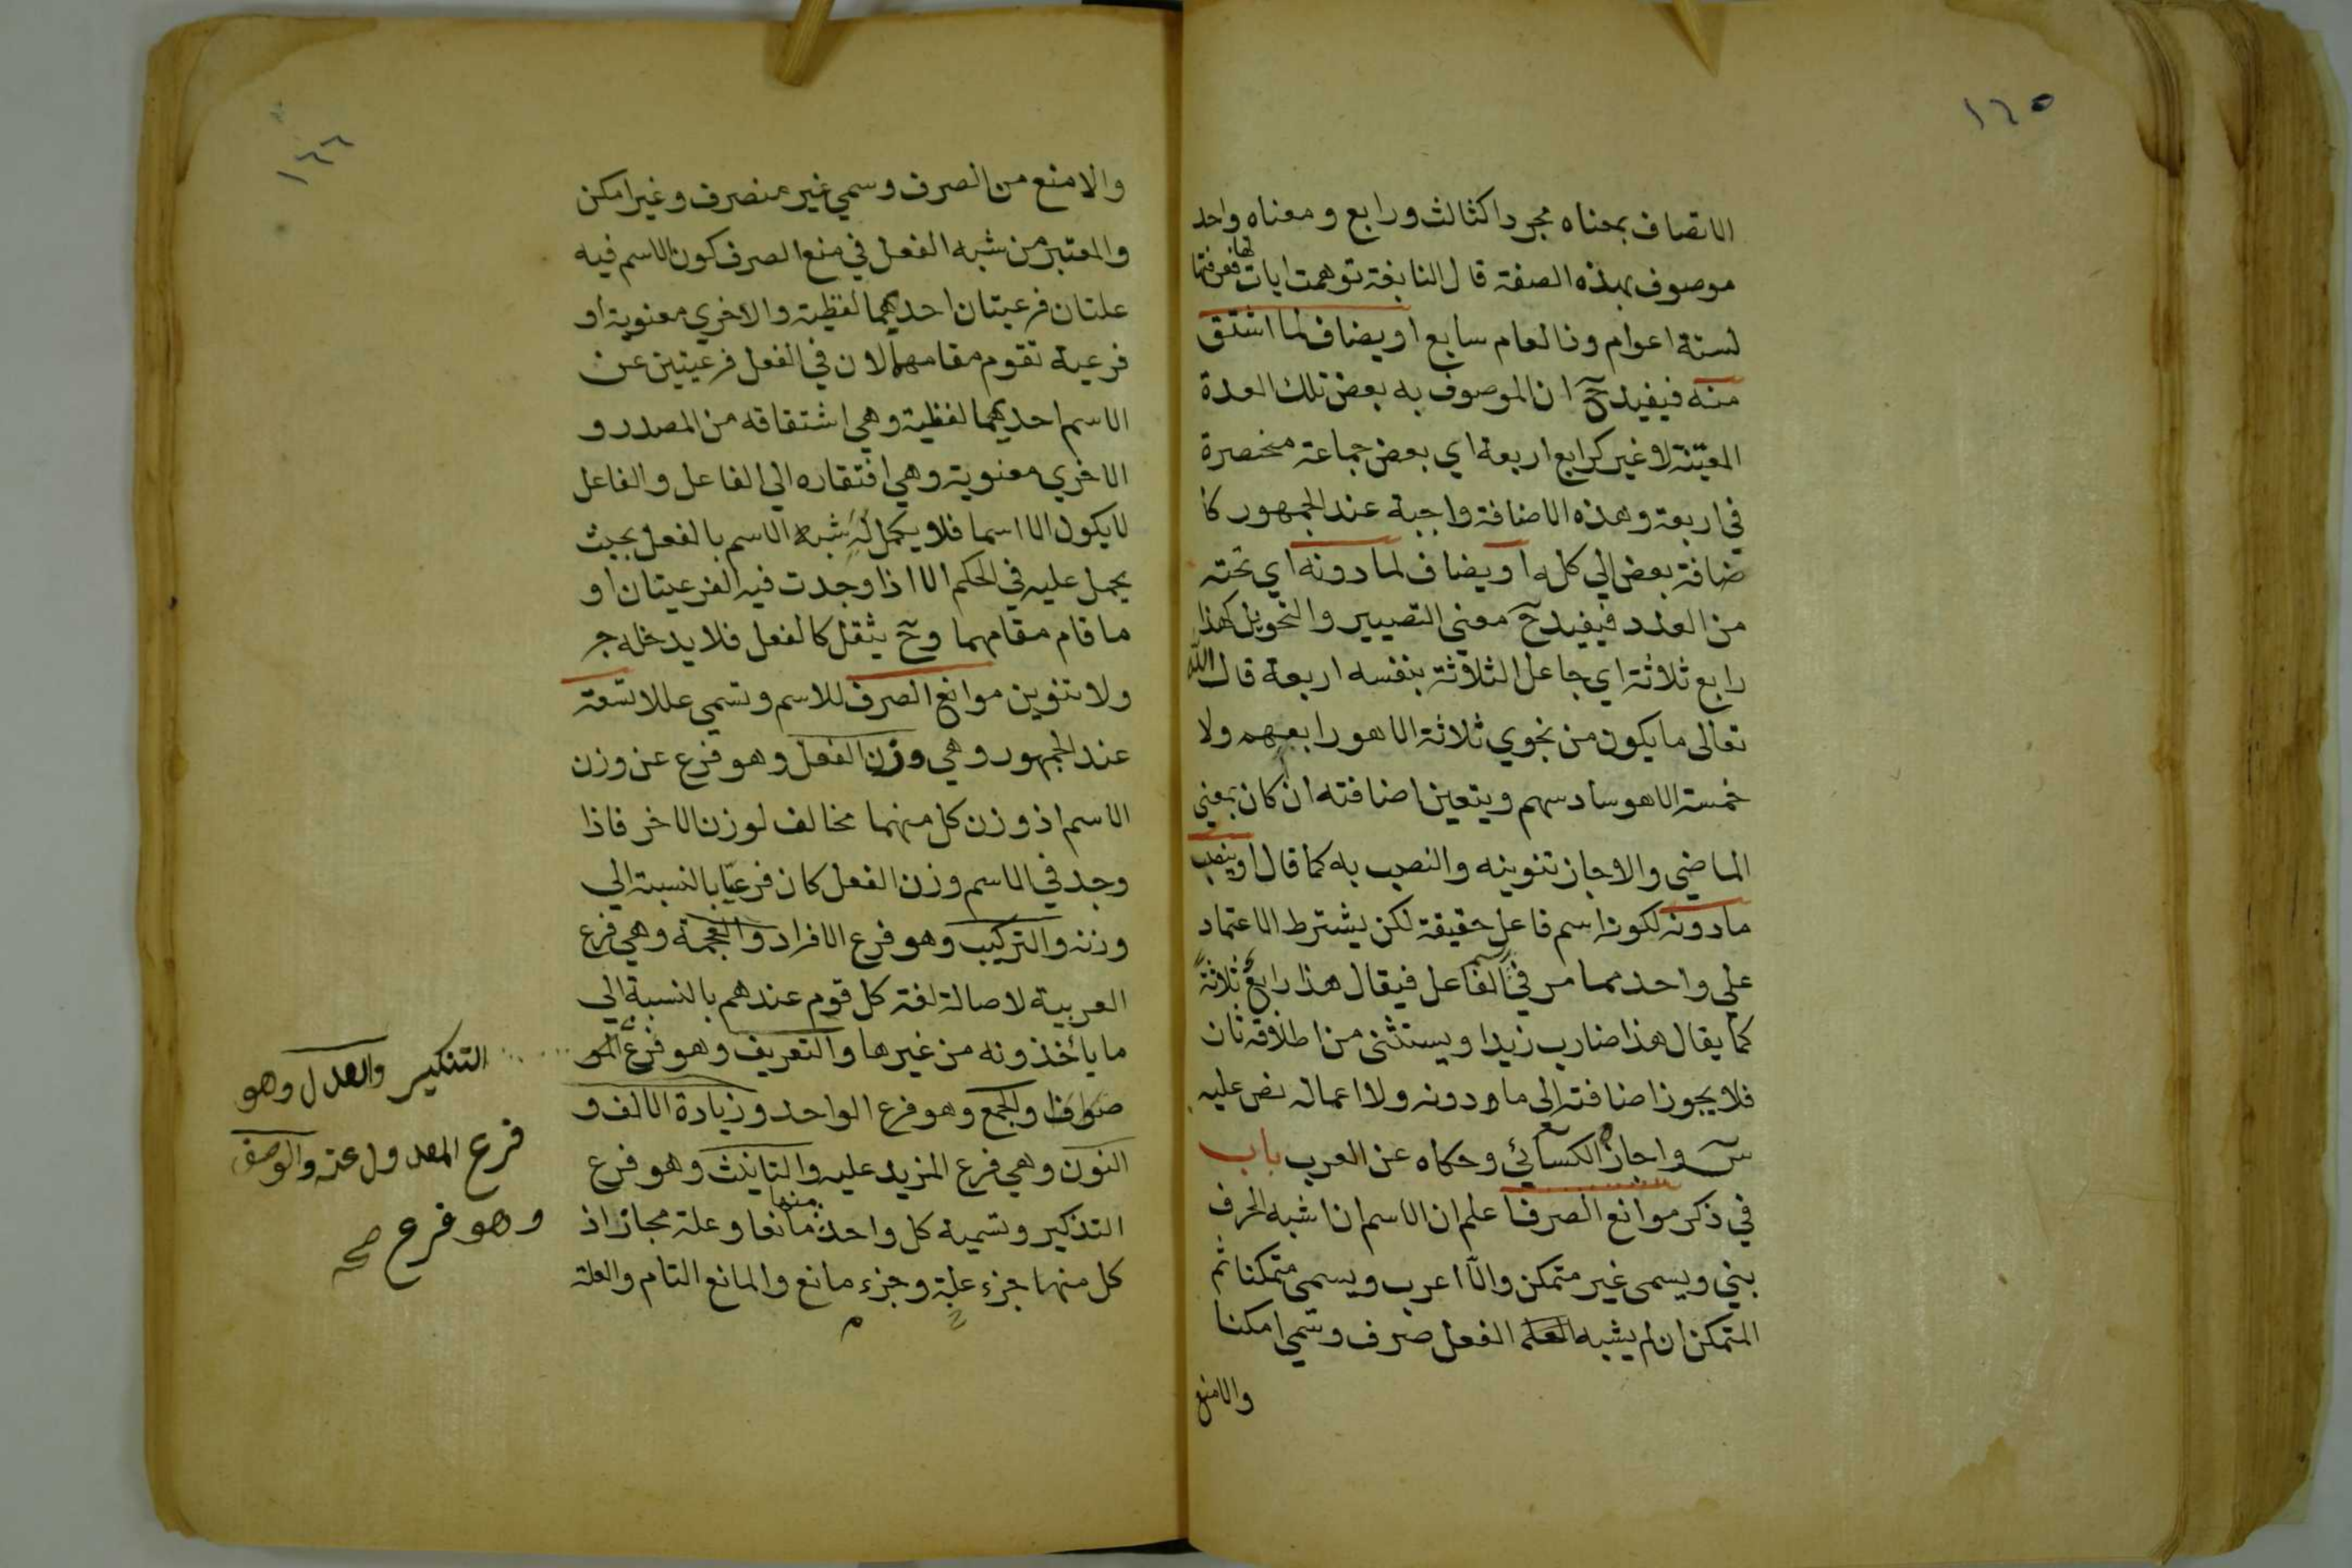 ١٦٥
الاتصاف بمعناه مجردا كثالث ورابع ومعناه واحد
موصوف بهذه الصفة قال النابغة توهمت ايات لها فعرفتها
لستة اعوام وذا العام سابع او يضاف لما اشتق
منه فيفيد ح ان الموصوف به بعض تلك العدة
المعينة لا غير كرابع اربعة اي بعض جماعة منحصرة
في اربعة وهذه الاضافة واجبة عند الجمهور كا
ضافة بعض الي كله او يضاف لما دونه اي تحته
من العدد فيفيد ح معني التصيير والتحويل كهذا
رابع ثلاثة اي جاعل الثلاثة بنفسه اربعة قال الله
تعالى ما يكون من نجوي ثلاثة الا هو رابعهم ولا
خمسة الا هو سادسهم ويتعين اضافته ان كان بمعني
الماضي والا جاز تنوينه والنصب به كما قال او ينصب
ما دونه لكونه اسم فاعل حقيقة لكن يشترط الاعتماد
علي واحد مما مر في اسم الفاعل فيقال هذا رابع ثلاثة
كما يقال هذا ضارب زيدا ويستثنى من اطلاقه ثان
فلا يجوز اضافته الى ما دونه ولا اعماله نص عليه
س واجازه الكسائي وحكاه عن العرب باب
في ذكر موانع الصرف اعلم ان الاسم ان اشبه الحرف
بني ويسمى غير متمكن والا اعرب ويسمى متمكنا ثم
المتمكن ان لم يشبه الفعل صرف وسمي امكنا
والامنع
١٦٦
والامنع من الصرف وسمي غير منصرف وغير امكن
والمعتبر من شبه الفعل في منع الصرف كون الاسم فيه
علتان فرعيتان احديهما لفظية والاخري معنوية او
فرعية تقوم مقامهما لان في الفعل فرعيتين عن
الاسم احديهما لفظية وهي اشتقاقه من المصدر و
الاخري معنوية وهي افتقاره الي الفاعل والفاعل
لا يكون الا اسما فلا يكمل شبه الاسم بالفعل بحيث
يحمل عليه في الحكم الا اذا وجدت فيه الفرعيتان او
ما قام مقامهما وح يثقل كالفعل فلا يدخله جر
ولا تنوين موانع الصرف للاسم وتسمي عللا تسعة
عند الجمهور وهي وزن الفعل وهو فرع عن وزن
الاسم اذ وزن كل منهما مخالف لوزن الاخر فاذا
وجد في الاسم وزن الفعل كان فرعيا بالنسبة الي
وزنه والتركيب وهو فرع الافراد والعجمة وهي فرع
العربية لاصالة لغة كل قوم عندهم بالنسبة الي
ما ياخذونه من غيرها والتعريف وهو فرع المو
صوف والجمع وهو فرع الواحد وزيادة الالف و
النون وهي فرع المزيد عليه والتانيث وهو فرع
التذكير وتسمية كل واحد منها مانعا وعلة مجاز اذ
كل منها جزء علة وجزء مانع والمانع التام والعلة
التنكير والعدل وهو
فرع المعدول عنه والوصف
وهو فرع صح